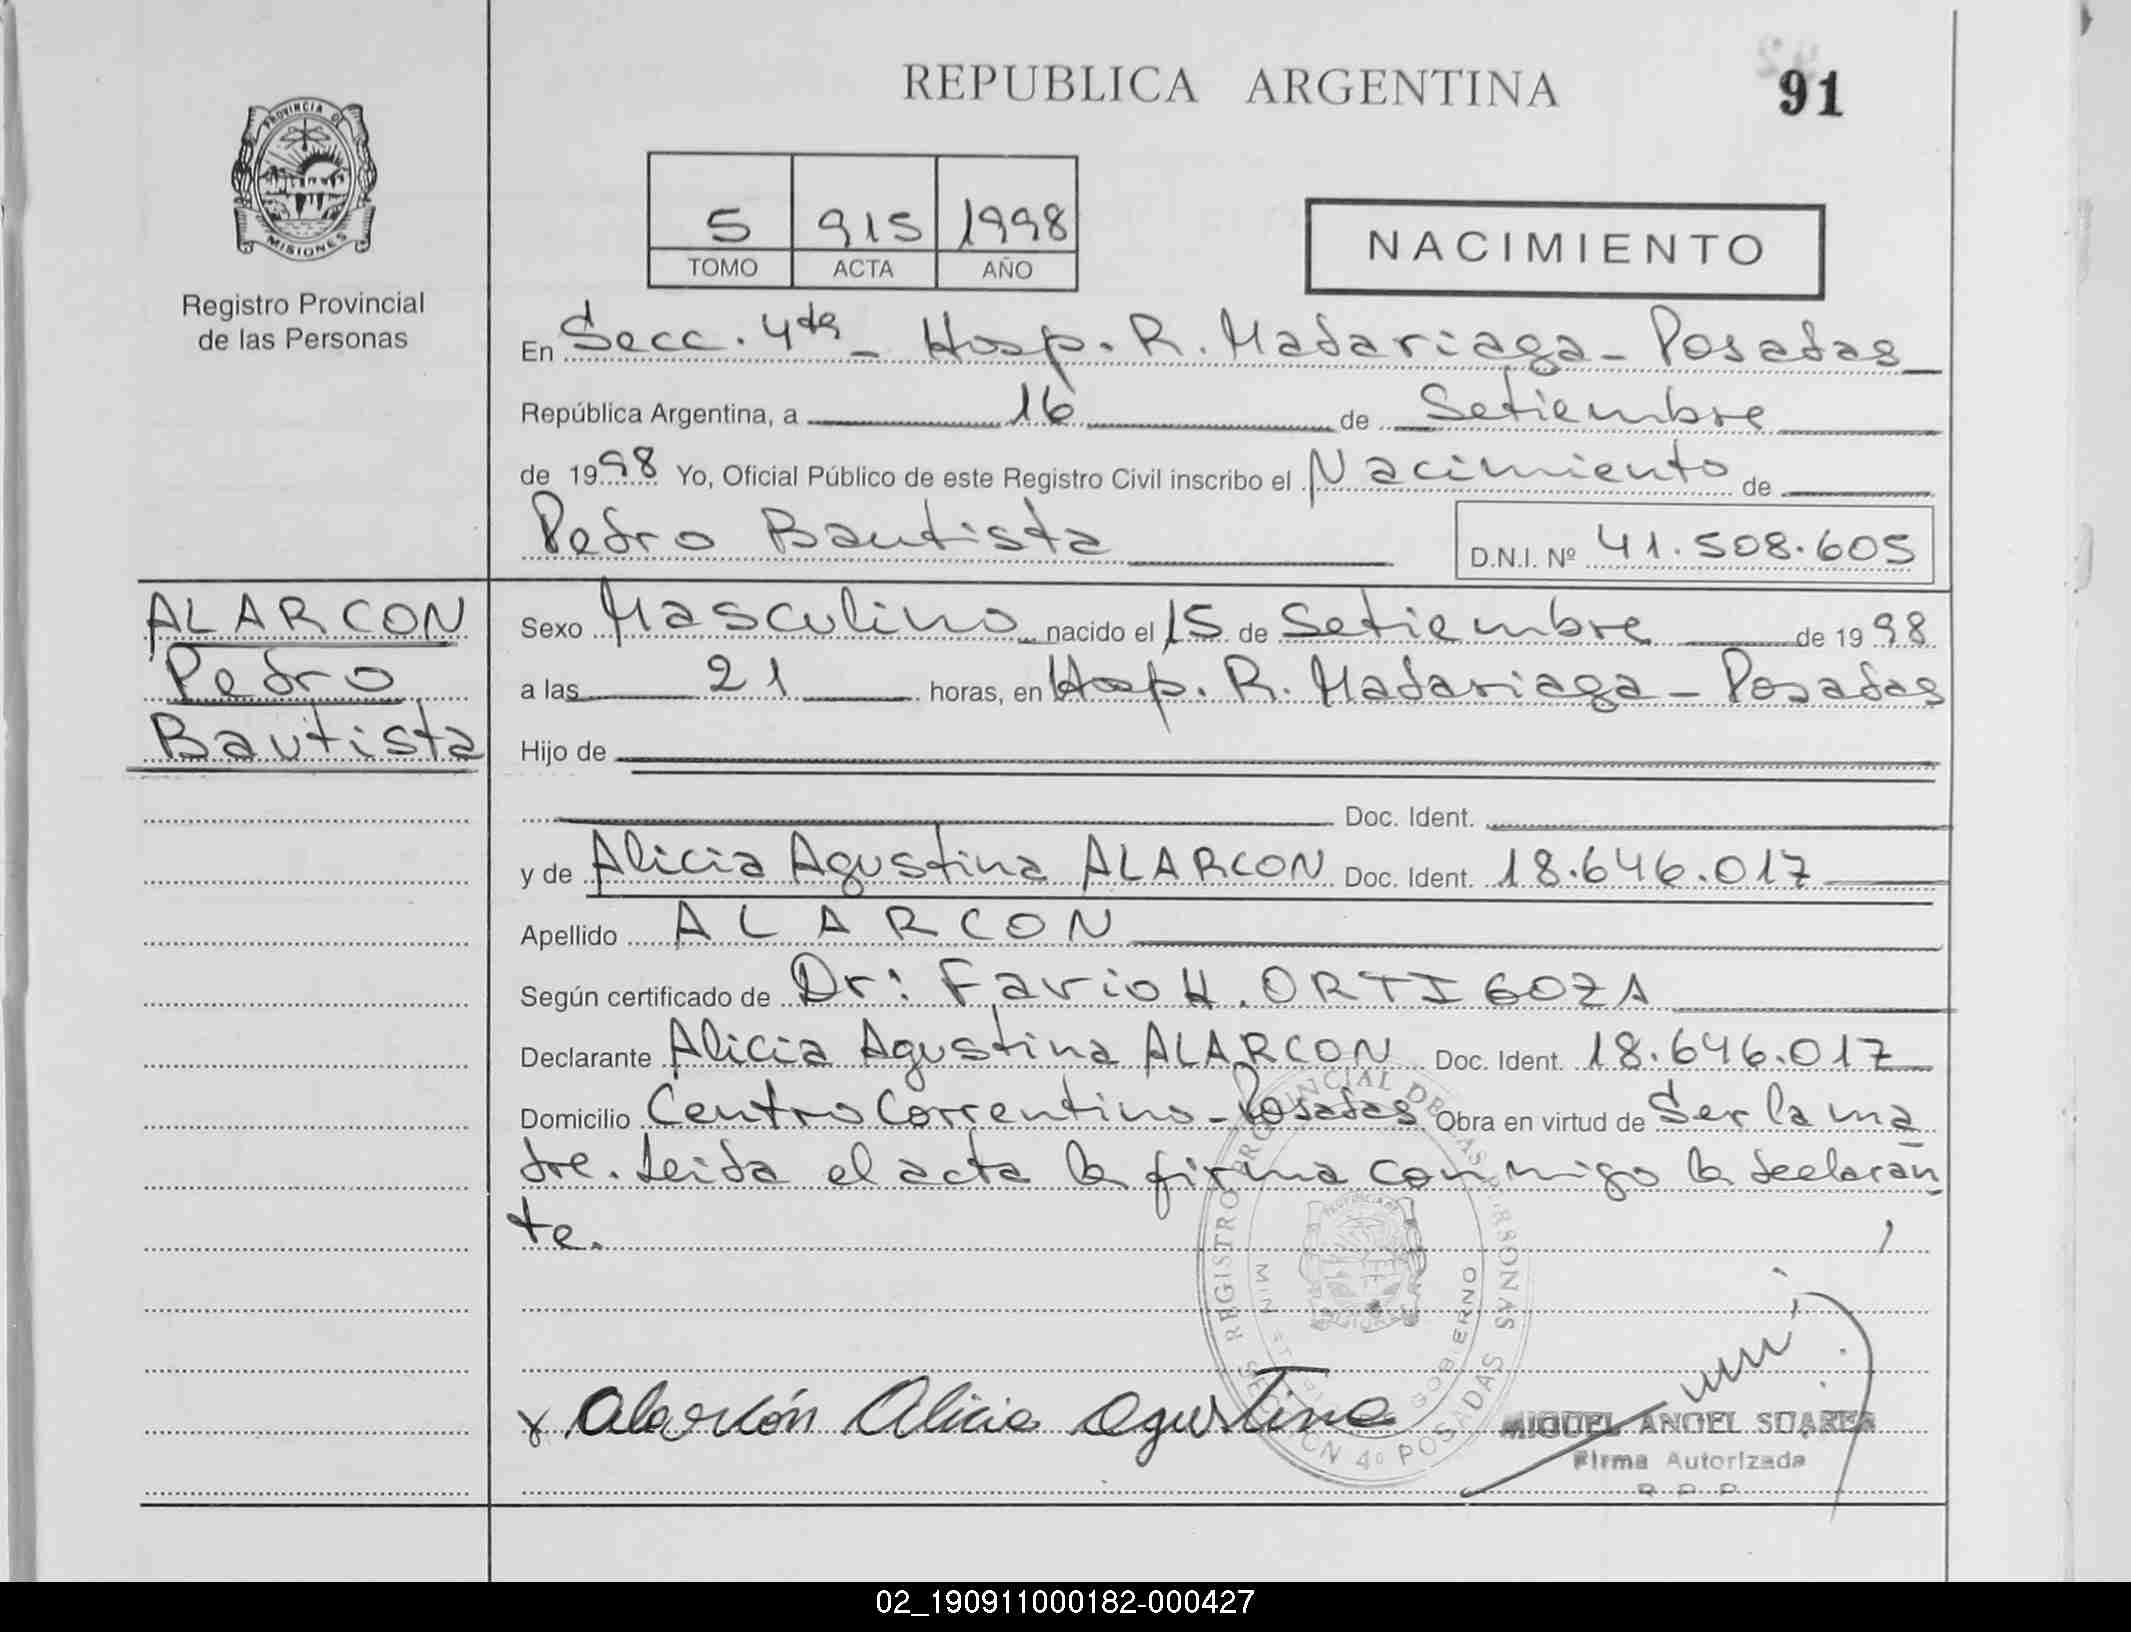 REPUBLICA ARGENTINA
91
PROVINCIA DE
MISIONES
Registro Provincial
de las Personas
5 915 1998
TOMO ACTA AÑO
NACIMIENTO
En Secc. 4ta - Hosp. R. Madariaga - Posadas
República Argentina, a 16 de Setiembre
de 1998 Yo, Oficial Público de este Registro Civil inscribo el Nacimiento de
Pedro Bautista
D.N.I. Nº 41.508.605
ALARCON
Pedro
Bautista
Sexo Masculino nacido el 15 de Setiembre de 1998
a las 21 horas, en Hosp. R. Madariaga - Posadas
Hijo de
Doc. Ident.
y de Alicia Agustina ALARCON Doc. Ident. 18.646.017
Apellido ALARCON
Según certificado de Dr: Favio H. ORTIGOZA
Declarante Alicia Agustina ALARCON Doc. Ident. 18.646.017
Domicilio Centro Correntino - Posadas Obra en virtud de Ser la ma
dre. Leida el acta la firma conmigo la declaran
te.
REGISTRO PROVINCIAL DE LAS PERSONAS
GOBIERNO
SECCION 4º POSADAS
x Alarcón Alicia Agustina
MIGUEL ANGEL SUAREZ
Firma Autorizada
R.P.P.
02_190911000182-000427